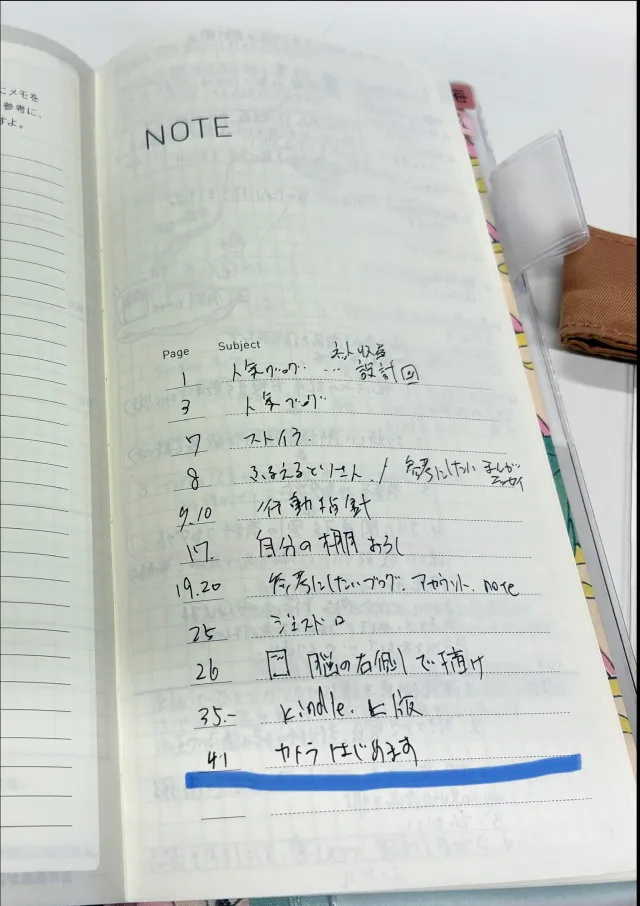 にメモを
参考に、
すよ。
NOTE
Page Subject
1 人気ブログ … ネット収益 設計図
3 人気ブログ
7 ストイラ.
8 ふるえるとりさん / 参考にしたい まんが エッセイ
9.10 行動指針
17. 自分の棚おろし
19.20 参考にしたいブログ. アカウント. note
25 ジェスドロ
26 脳の右側で描け
35.- kindle. 出版
41 カトラはじめます